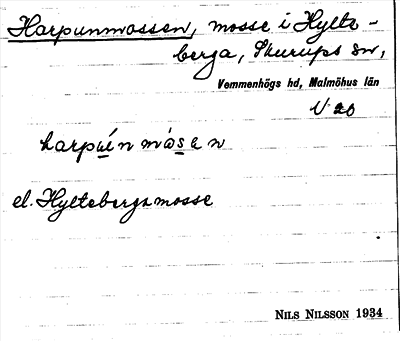 Harpunmossen, mosse i Hylte-
berga, Skurups sn,
Vemmenhögs hd, Malmöhus län
V 20
harpún mósen
el. Hyltebergamosse
NILS NILSSON 1934